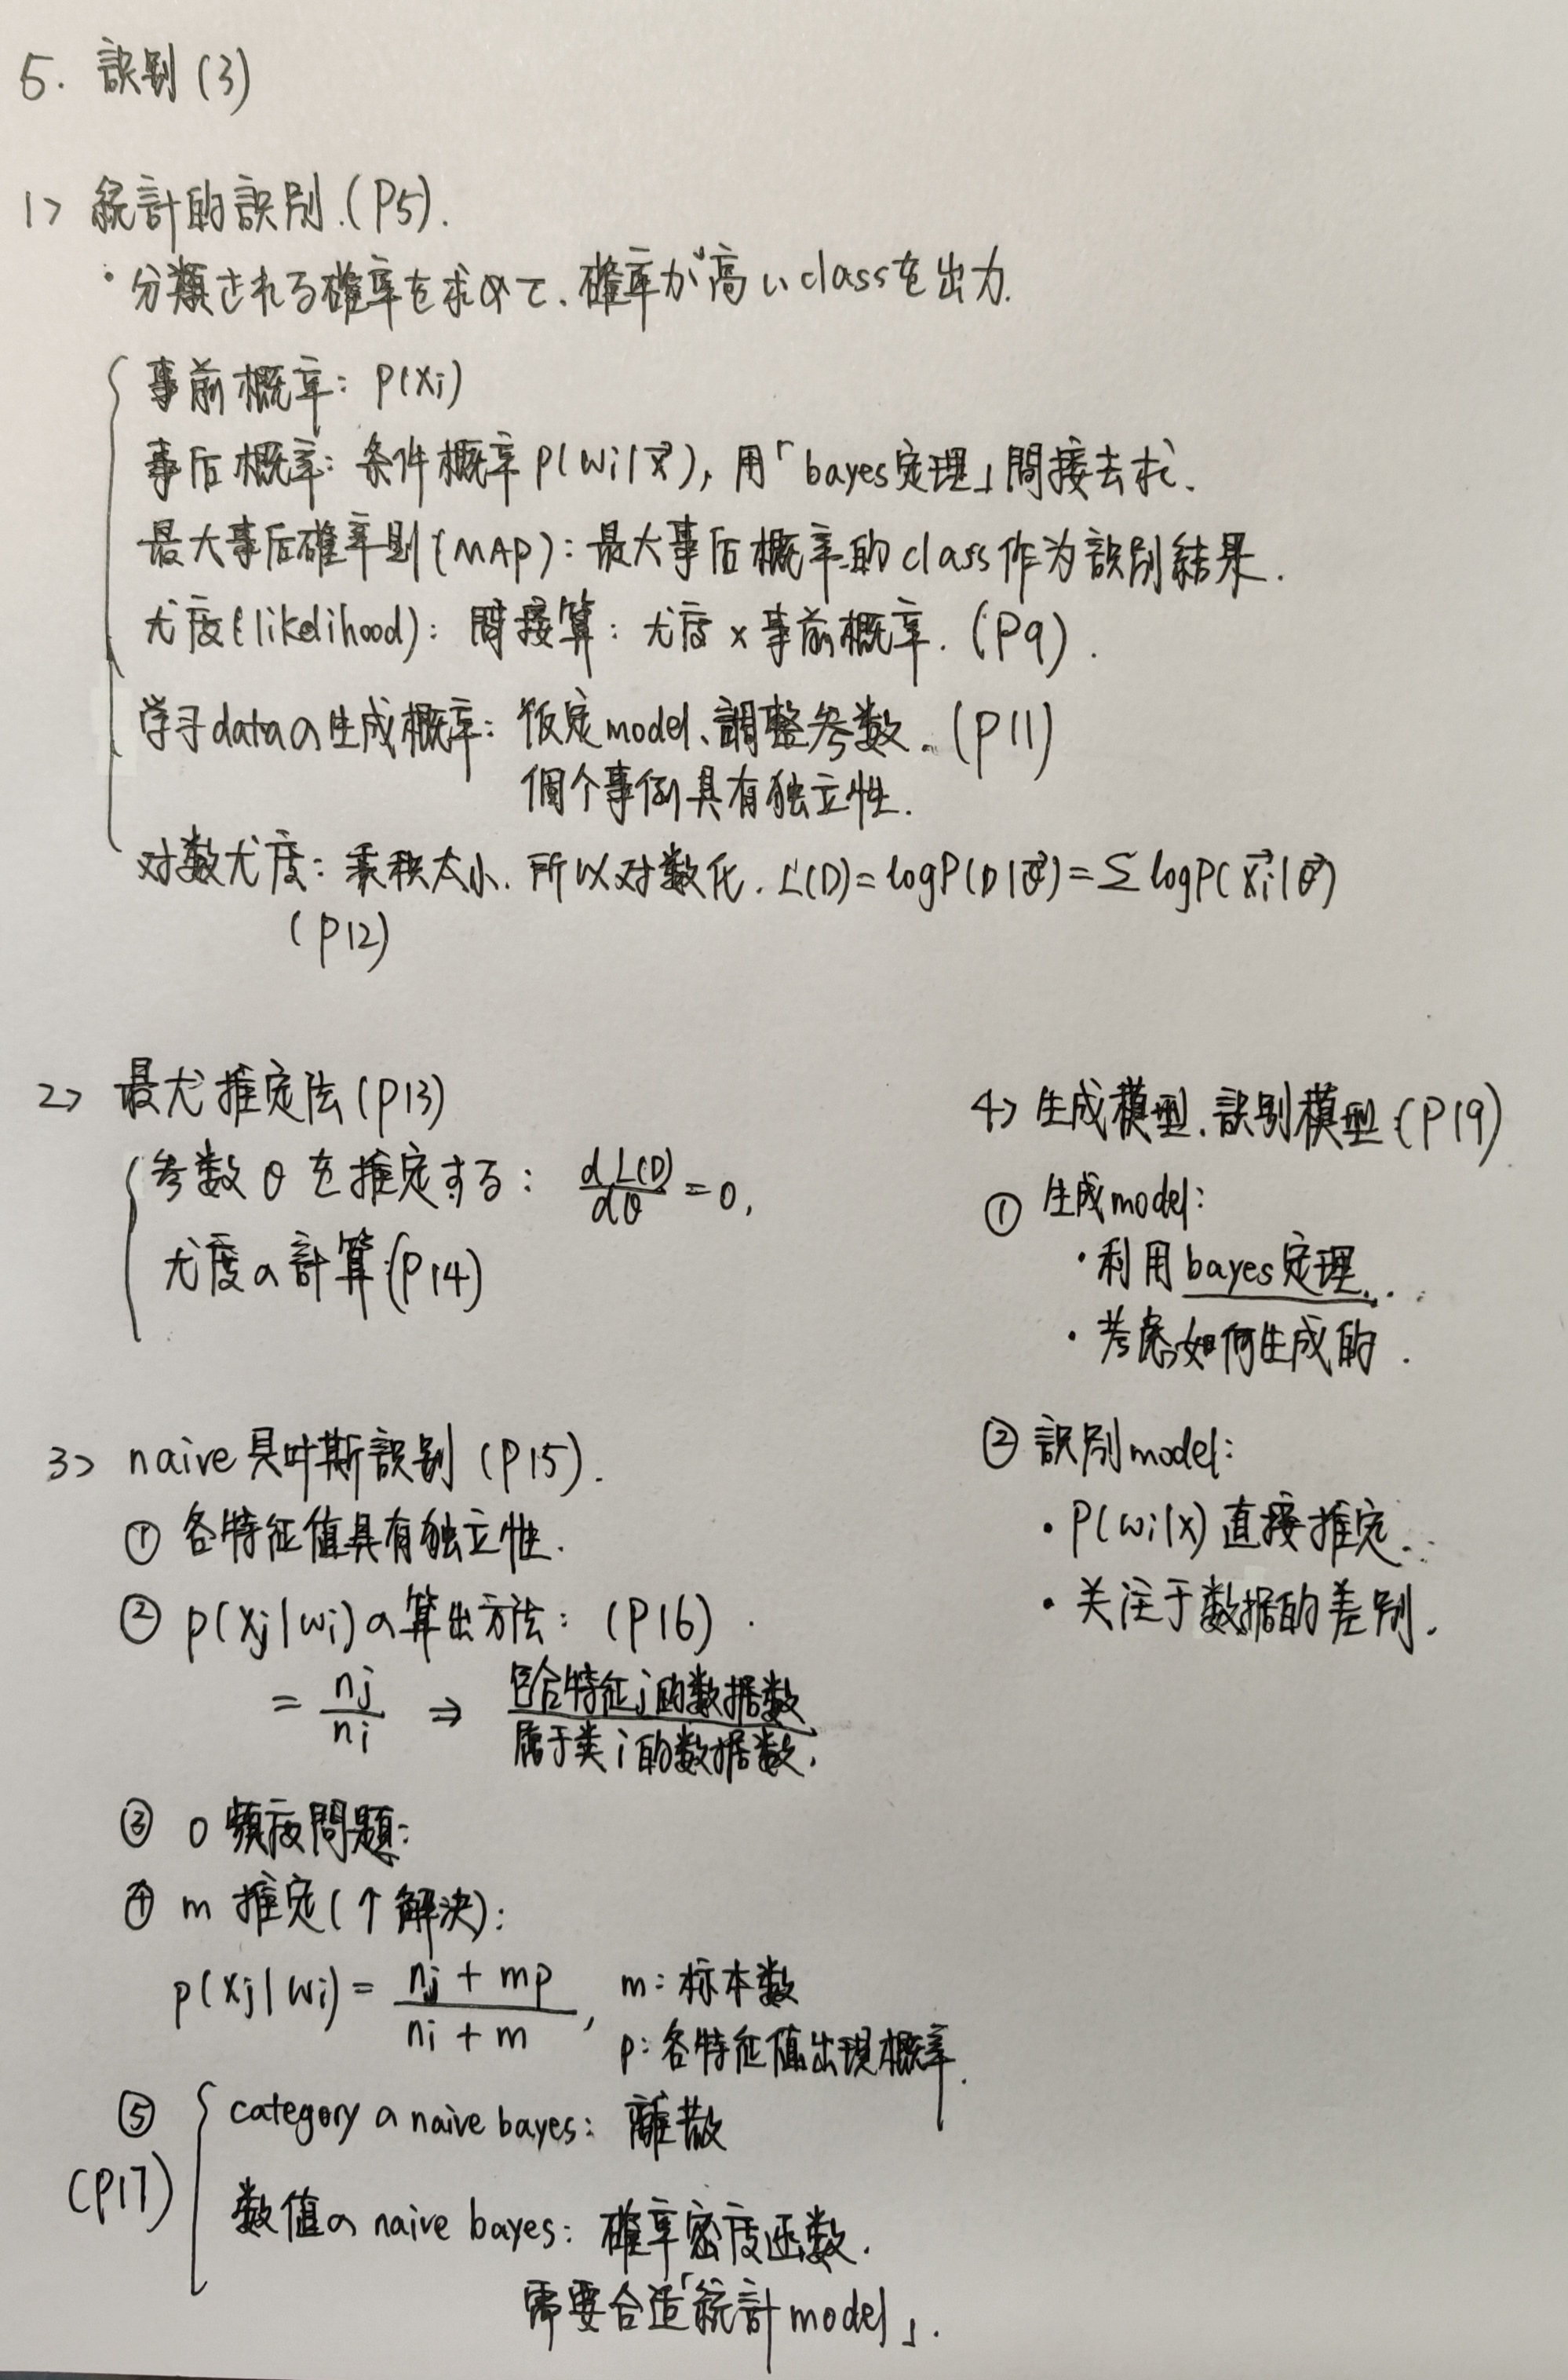 5. 識別(3)
1> 統計的識别.(P5).
・分類される確率を求めて、確率が高いclassを出力.
事前概率: P(xi)
事后概率: 条件概率 P(wi|x⃗), 用「bayes定理」間接去求.
最大事后確率則(MAP): 最大事后概率的class作为識别結果.
尤度(likelihood): 間接算: 尤度×事前概率. (P9).
学习dataの生成概率: 仮定model、調整参数. (P11)
個个事例具有独立性.
对数尤度: 乘积太小. 所以对数化. L(D)=logP(D|θ⃗)=Σ logP(x⃗i|θ⃗)
(P12)
2> 最尤推定法(P13)
参数 θ を推定する: dL(D)/dθ = 0,
尤度の計算(P14)
3> naive 贝叶斯識别 (P15).
① 各特征值具有独立性.
② p(xj|wi)の算出方法: (P16)
= nj/ni ⇒ 包含特征j的数据数/属于类i的数据数.
③ 0 頻度問題:
④ m 推定(↑解決):
p(xj|wi) = (nj + mp)/(ni + m), m: 标本数
p: 各特征值出現概率.
⑤ category の naive bayes: 離散
(P17)
数值の naive bayes: 確率密度函数.
需要合适「統計model」.
4> 生成模型.識別模型(P19)
① 生成model:
・利用bayes定理.
・考虑如何生成的.
② 識别model:
・P(wi|x) 直接推定.
・关注于数据的差别.